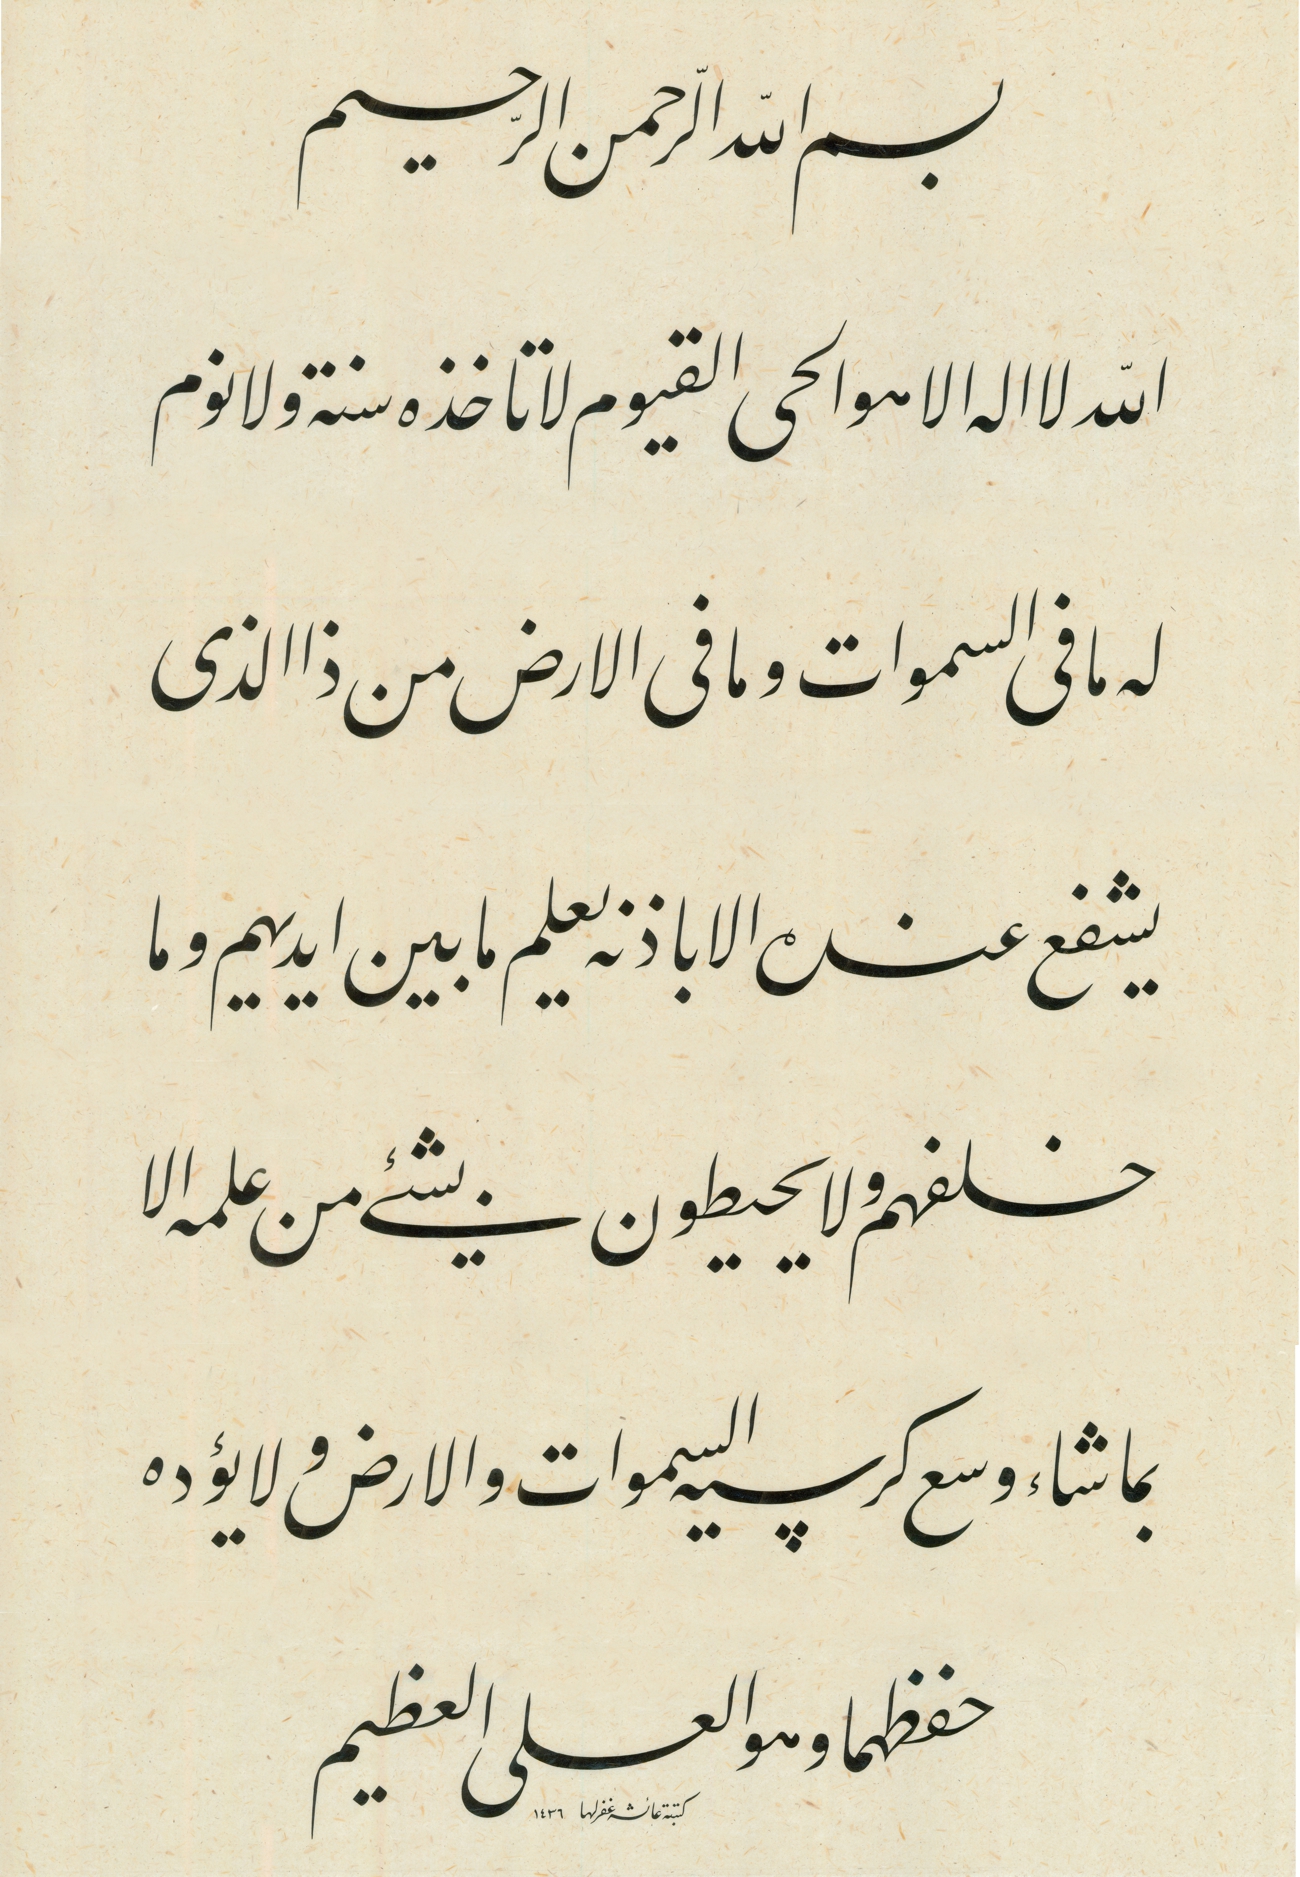 بسم الله الرّحمن الرّحيم
الله لا اله الا هو الحى القيوم لا تاخذه سنة ولا نوم
له ما فى السموات وما فى الارض من ذا الذى
يشفع عنده الا باذنه يعلم ما بين ايديهم وما
خلفهم ولا يحيطون بشئ من علمه الا
بما شاء وسع كرسيه السموات والارض ولا يؤده
حفظهما وهو العلى العظيم
كتبته عائشه غفرلها ١٤٣٦